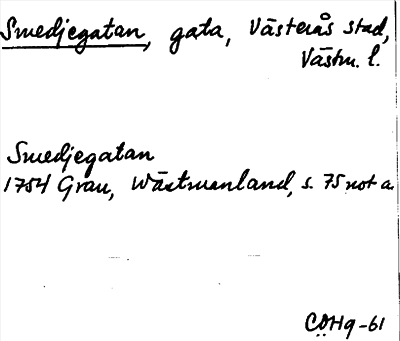 Smedjegatan, gata, Västerås stad,
Västm. l.
Smedjegatan
1754 Grau, Wästmanland, s. 75 not a.
CÖHg-61